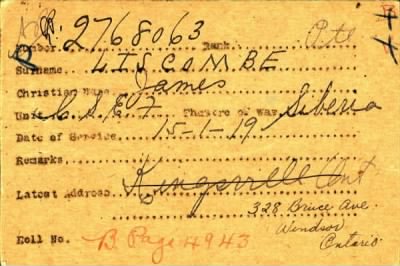 Number 2768063 Rank Pte
Surname LISCOMBE
Christian Name James
Unit C S E F Theatre of War Siberia
Date of Service 15-1-19
Remarks
Latest Address Kingsville Ont
328 Bruce Ave.
Windsor
Ontario.
Roll No. B. Page 4943